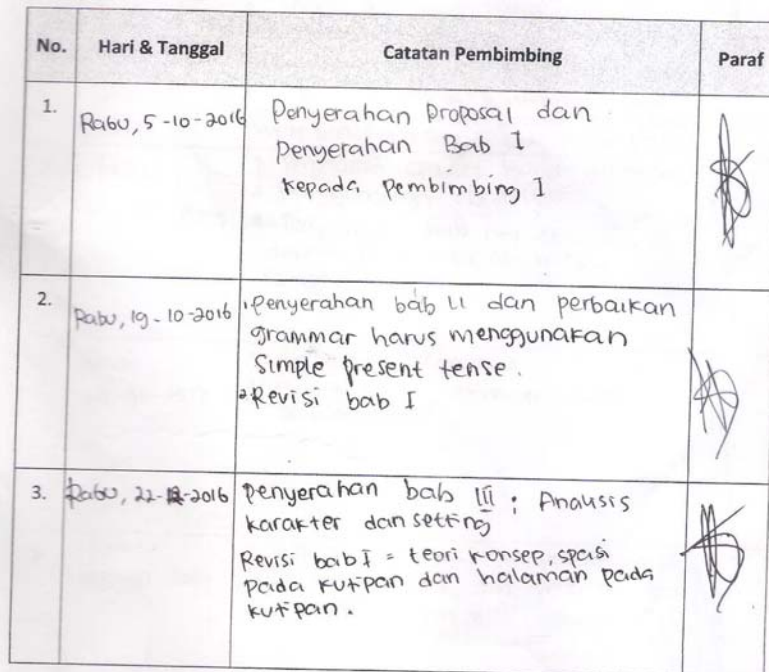 No. Hari & Tanggal Catatan Pembimbing Paraf
1. Rabu, 5-10-2016 Penyerahan Proposal dan
Penyerahan Bab I
kepada Pembimbing I
2. Rabu, 19-10-2016 1. Penyerahan bab II dan perbaikan
grammar harus menggunakan
Simple present tense.
2 Revisi bab I
3. Rabu, 22- -2016 Penyerahan bab III : Analisis
karakter dan setting
Revisi bab I = teori konsep, spasi
pada kutipan dan halaman pada
kutipan.